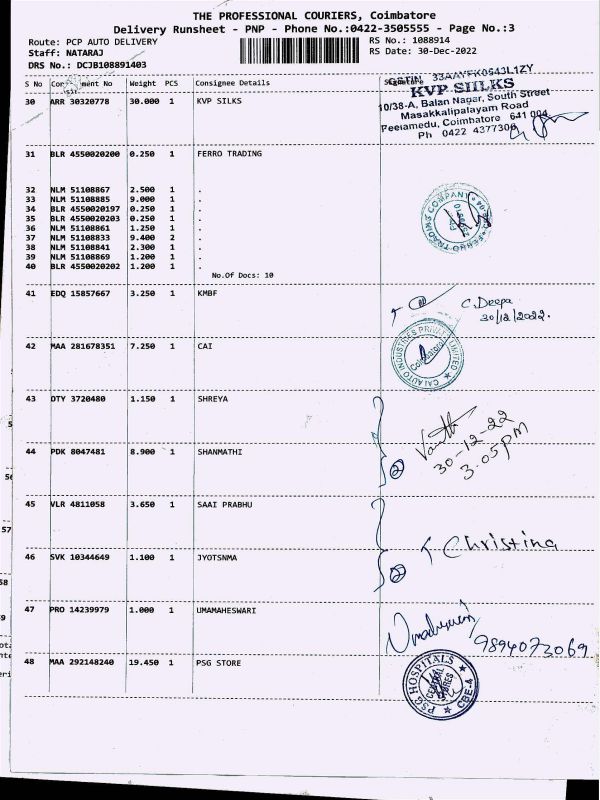 THE PROFESSIONAL COURIERS, Coimbatore
Delivery Runsheet - PNP - Phone No.:0422-3505555 - Page No.:3
Route: PCP AUTO DELIVERY
RS No.: 1088914
Staff: NATARAJ
RS Date: 30-Dec-2022
DRS No.: DCJB108891403
S No Consignment No Weight PCS Consignee Details Signature
30 ARR 30320778 30.000 1 KVP SILKS
KVP SIILKS
10/38-A, Balan Nagar, South Street
Masakkalipalayam Road
Peelamedu, Coimbatore 641 004
Ph 0422 4377300
31 BLR 4550020200 0.250 1 FERRO TRADING
32 NLM 51108867 2.500 1 .
33 NLM 51108885 9.000 1 .
34 BLR 4550020197 0.250 1 .
35 BLR 4550020203 0.250 1 .
36 NLM 51108861 1.250 1 .
37 NLM 51108833 9.400 2 .
38 NLM 51108841 2.300 1 .
39 NLM 51108869 1.200 1 .
40 BLR 4550020202 1.200 1 .
No.Of Docs: 10
FERRO TRADING COMPANY
41 EDQ 15857667 3.250 1 KMBF
C. Deepa
30/12/2022.
42 MAA 281678351 7.250 1 CAI
CAI AUTO INDUSTRIES PRIVATE LIMITED
Coimbatore
43 DTY 3720480 1.150 1 SHREYA
30-12-22
3.05PM
44 PDK 8047481 8.900 1 SHANMATHI
2
45 VLR 4811058 3.650 1 SAAI PRABHU
Christina
46 SVK 10344649 1.100 1 JYOTSNMA
2
47 PRO 14239979 1.000 1 UMAMAHESWARI
9894073069
48 MAA 292148240 19.450 1 PSG STORE
PSG HOSPITALS
CENTRAL
STORES
CBE-4